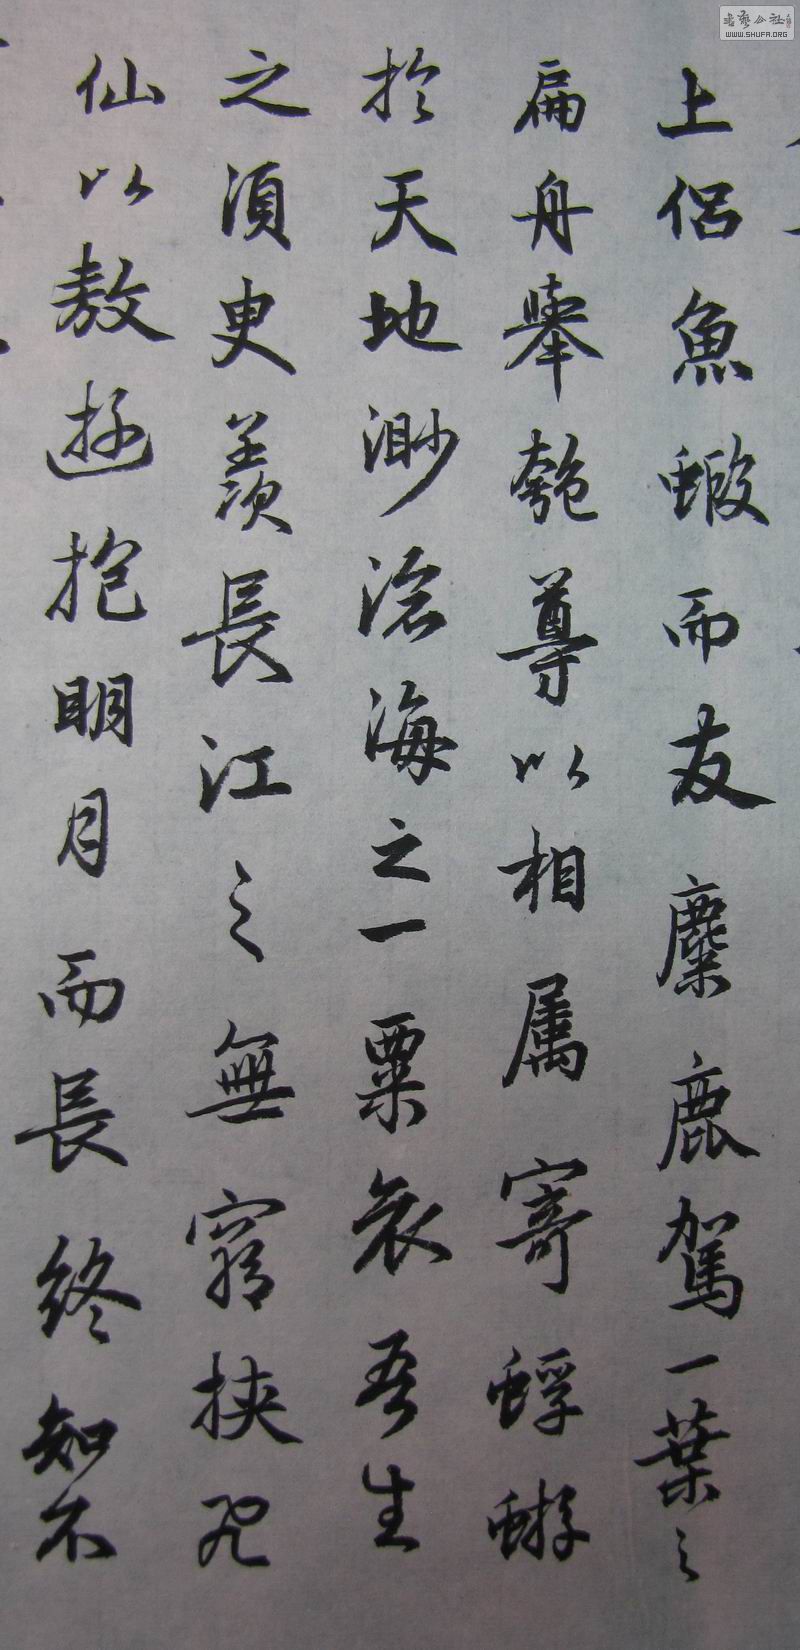 上侣魚蝦而友麋鹿駕一葉之
扁舟舉匏尊以相属寄蜉蝣
扵天地渺滄海之一粟哀吾生
之須臾羨長江之無窮挟飛
仙以敖遊抱明月而長終知不
書藝公社
WWW.SHUFA.ORG